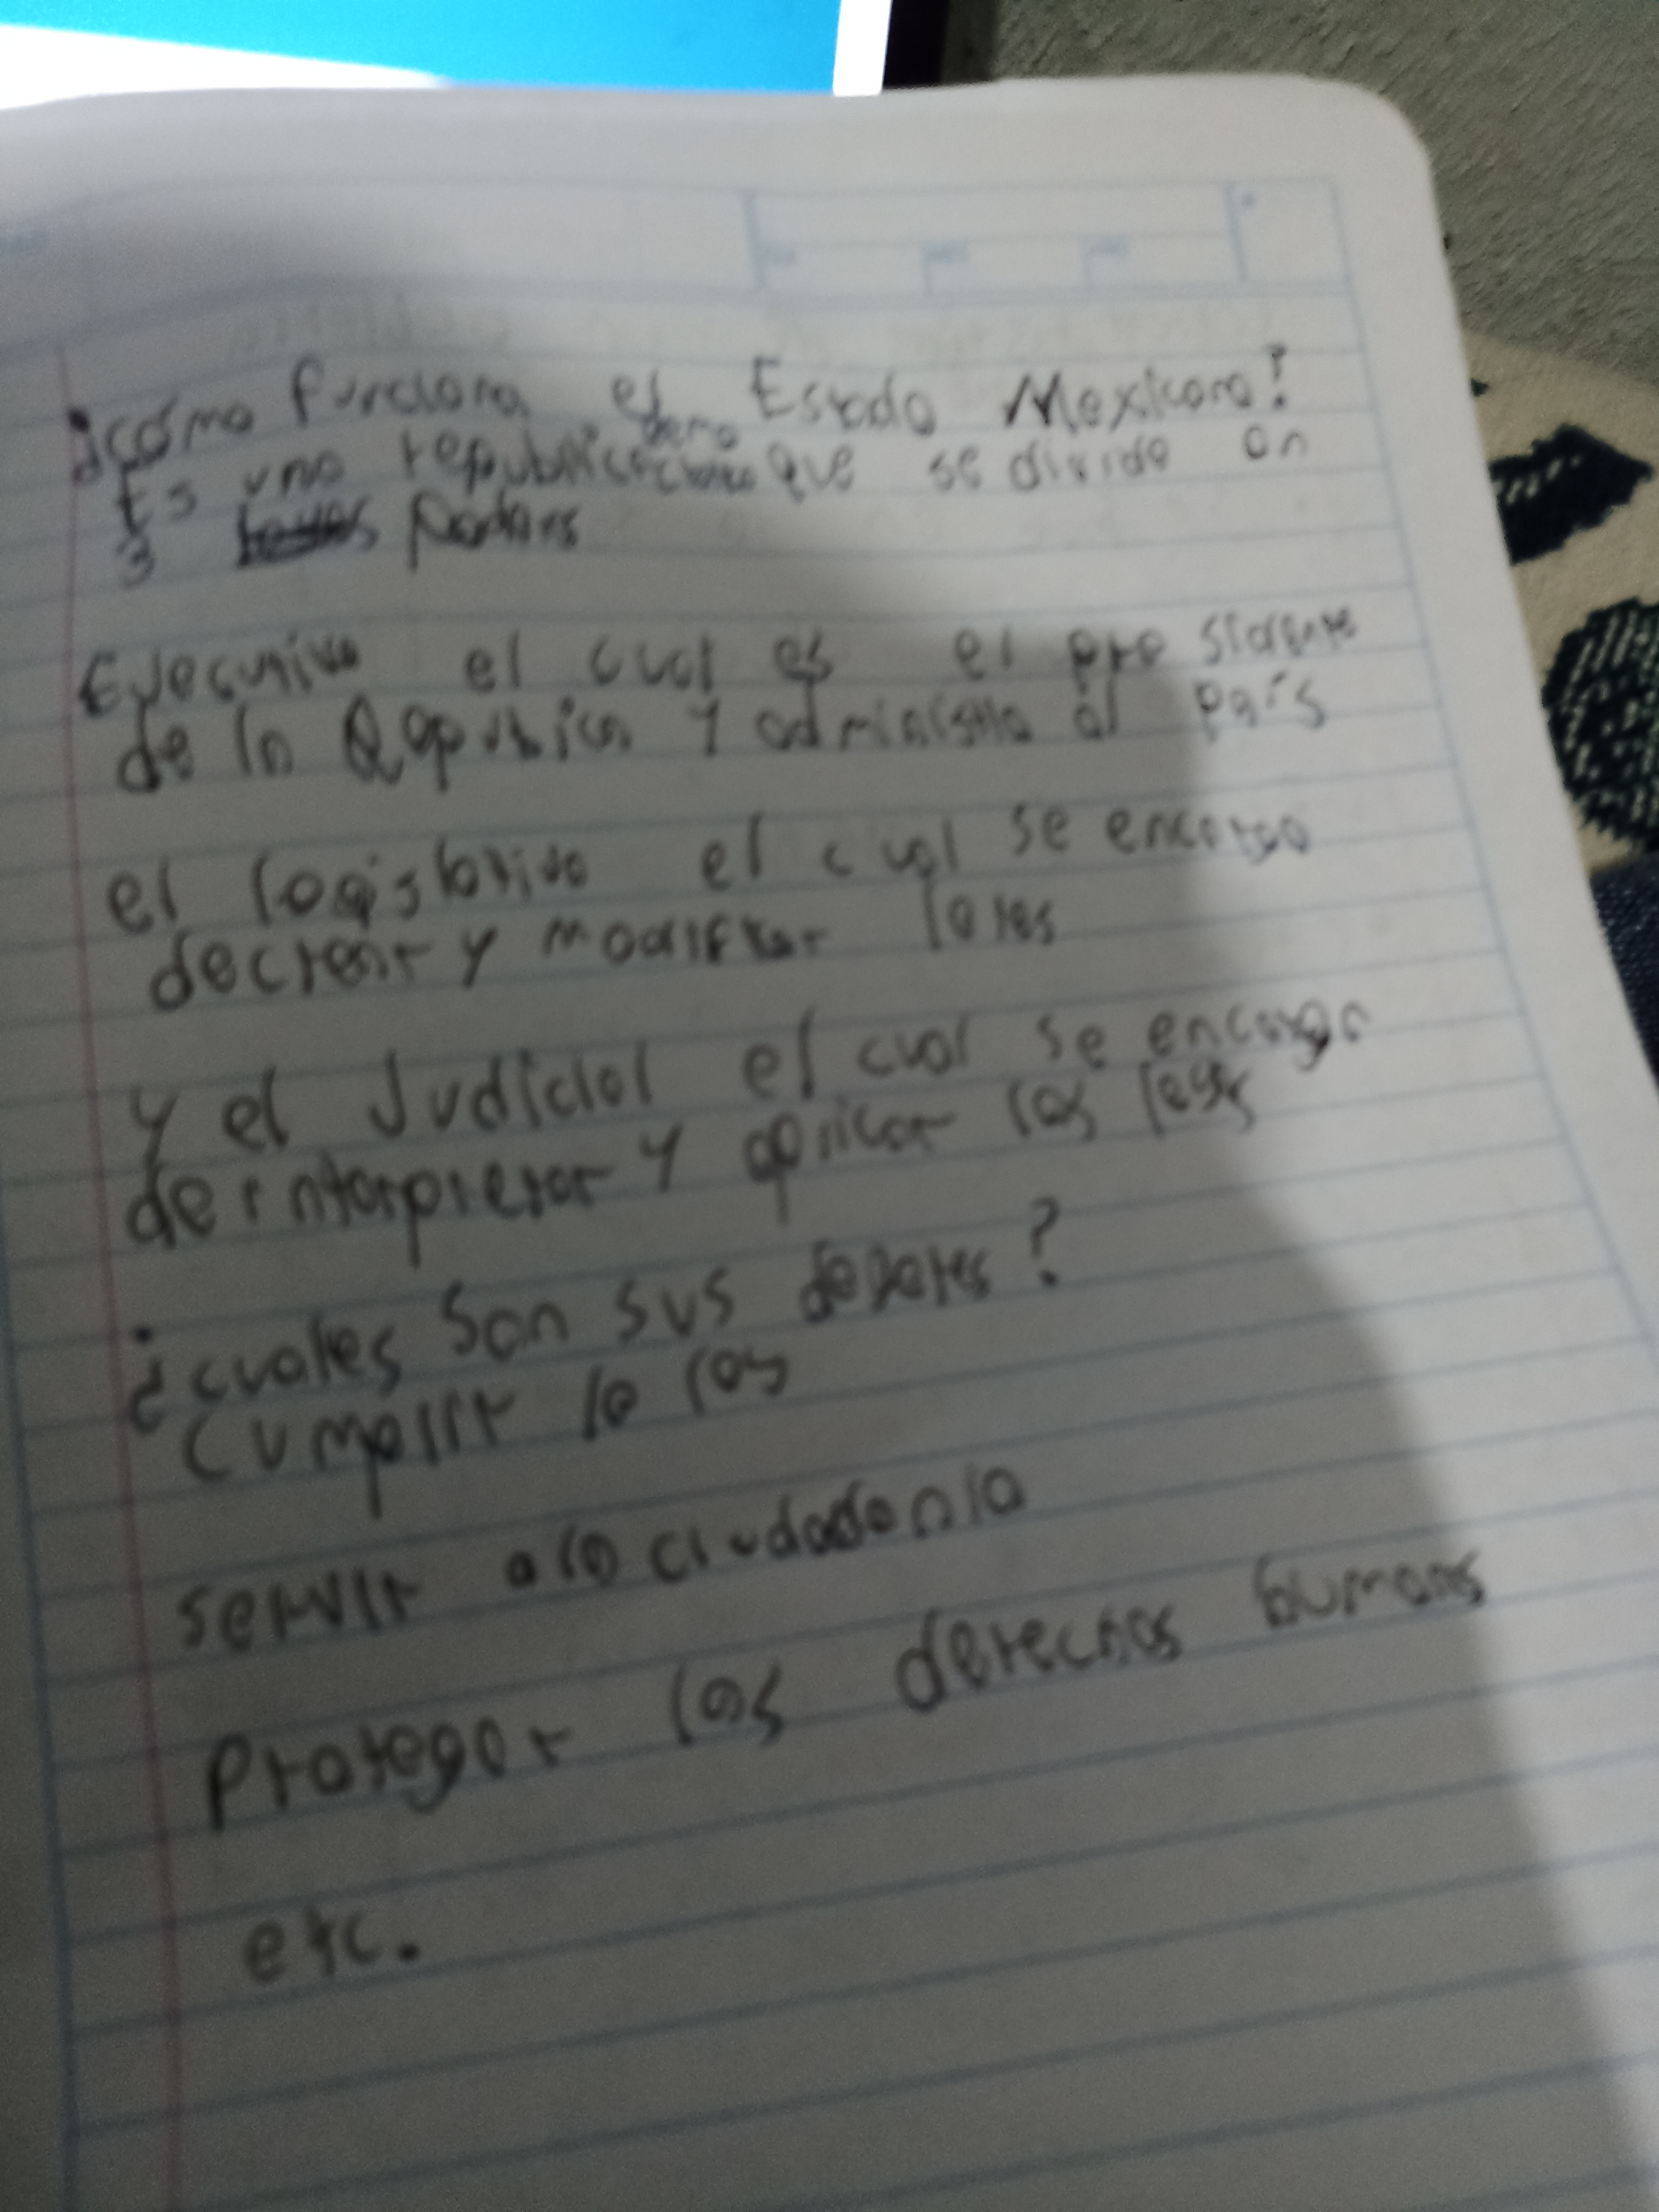 ¿cómo funciona el Estado Mexicano?
Es una republica que se divide en
3 poderes
Ejecutivo el cual es el presidente
de la Republica y administra al país
el legislativo el cual se encarga
de crear y modificar leles
y el Judicial el cual se encarga
de interpretar y aplicar las leyes
¿cuales son sus deberes?
cumplir
servir a la ciudadania
Proteger los derechos humanos
etc.